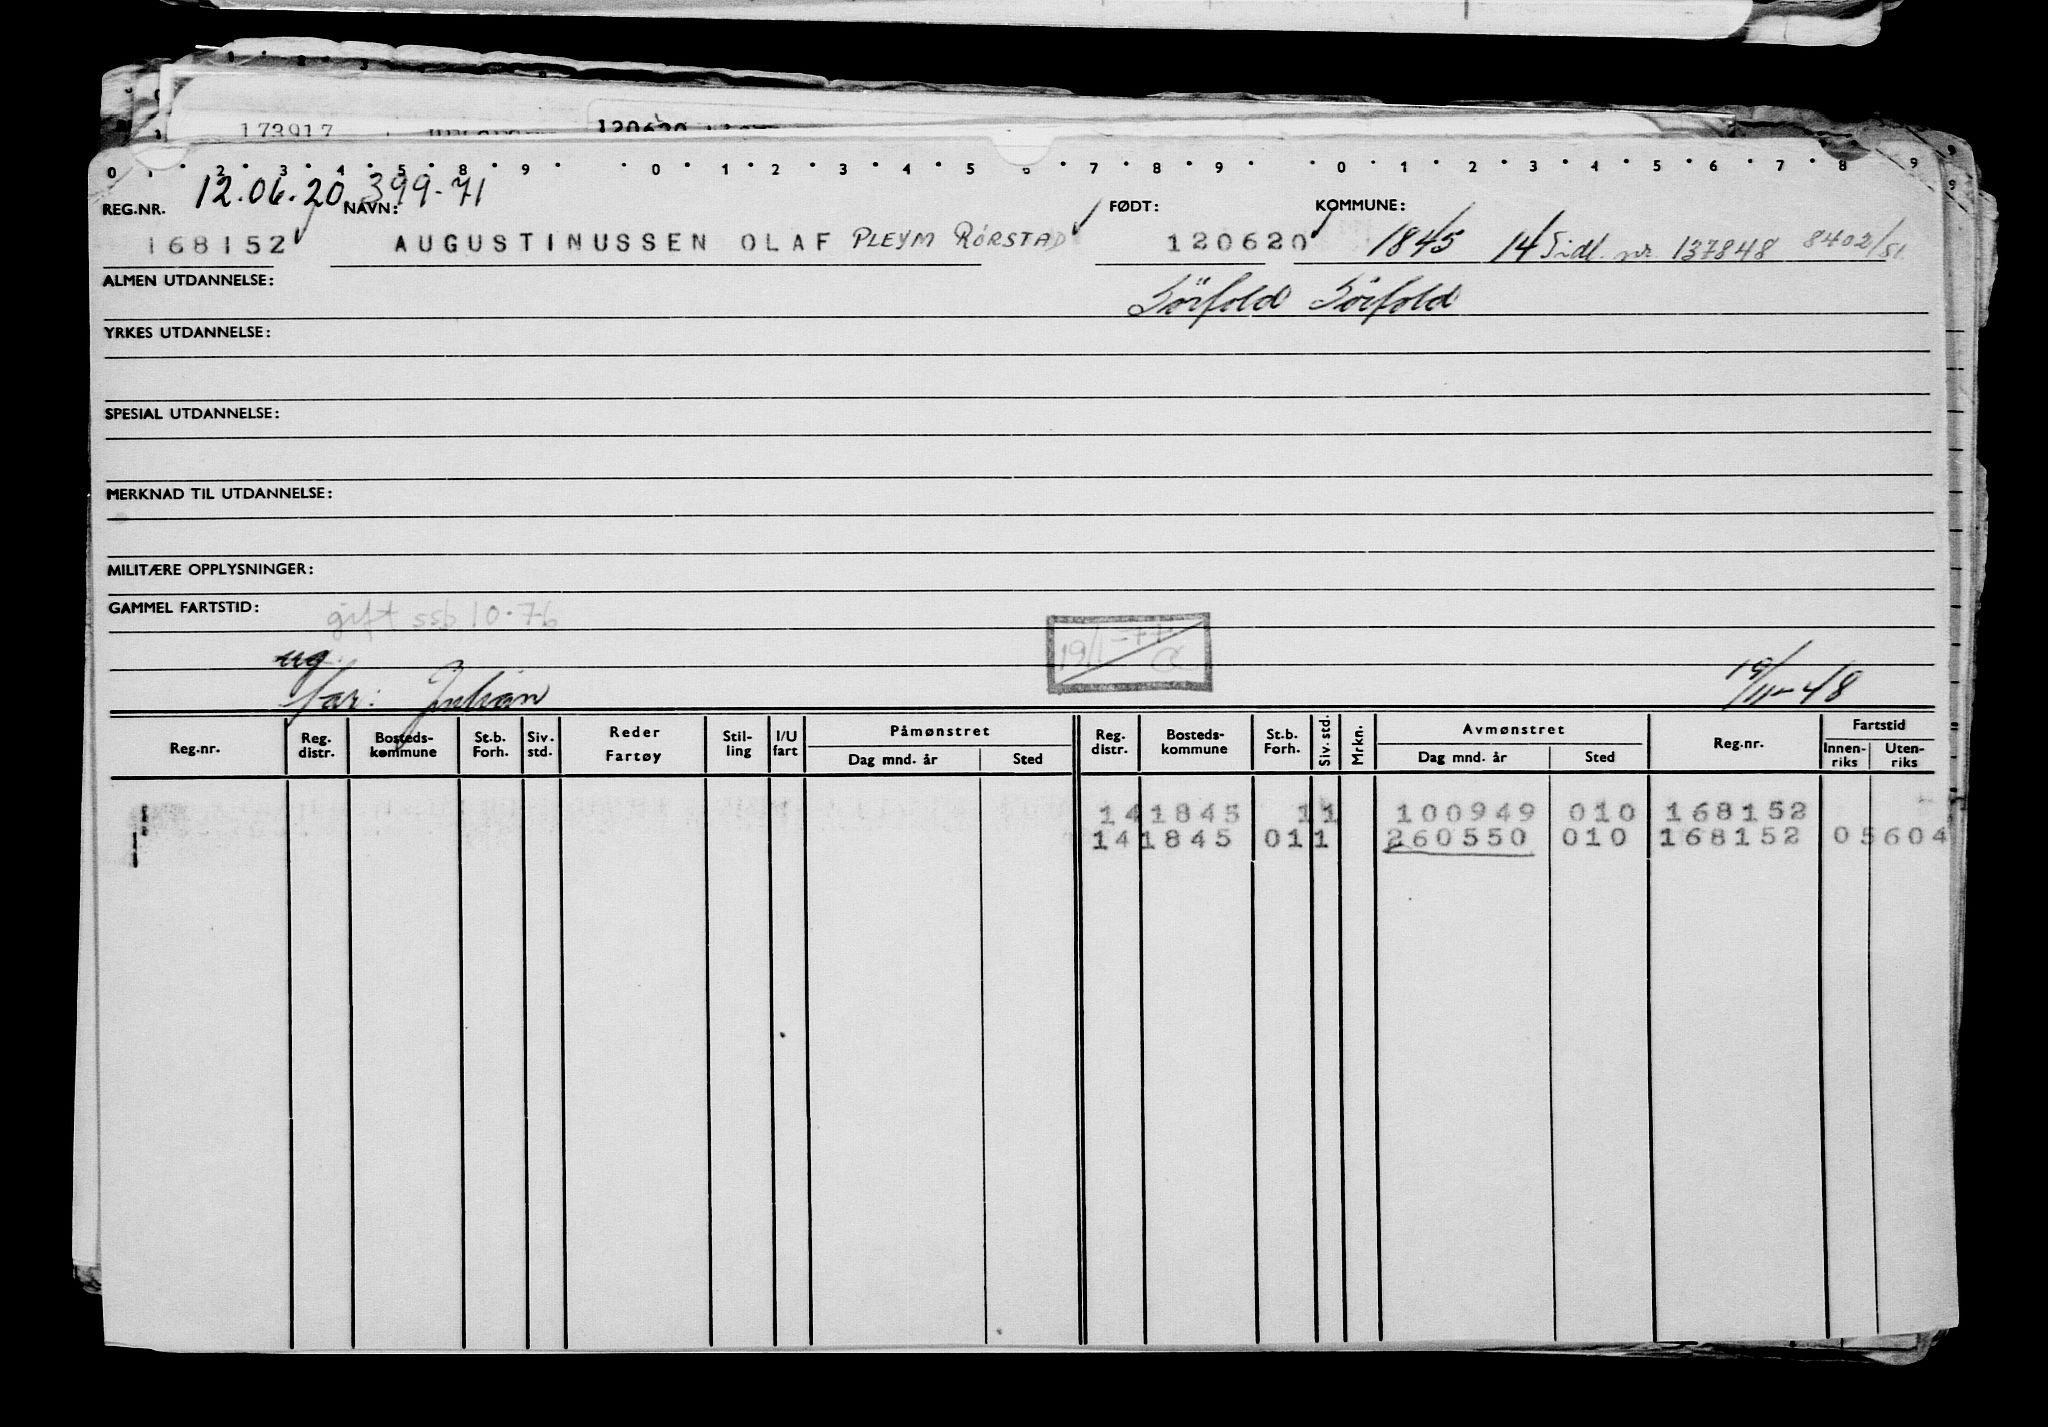 173917 120620
0 1 2 3 4 5 8 9 0 1 2 3 4 5 6 7 8 9 0 1 2 3 4 5 6 7 8 9
12.06.20 399-71
REG.NR. NAVN: FØDT: KOMMUNE:
168152 AUGUSTINUSSEN OLAF PLEYM RÖRSTAD 120620 1845 14 Tidl. nr. 137848 8402/51
ALMEN UTDANNELSE: Sörfold Sörfold
YRKES UTDANNELSE:
SPESIAL UTDANNELSE:
MERKNAD TIL UTDANNELSE:
MILITÆRE OPPLYSNINGER:
GAMMEL FARTSTID: gift ssb 10.76
19/1-77
ug.
far: Julian 19/11-48
Reg.nr. Reg. distr. Bosteds-kommune St.b. Forh. Siv. std. Reder Fartøy Stil-ling I/U fart Påmønstret Dag mnd. år Sted Reg. distr. Bosteds-kommune St.b. Forh. Siv. std. Mrkn. Avmønstret Dag mnd. år Sted Reg.nr. Fartstid Innen-riks Uten-riks
14 1845 1 1 100949 010 168152
14 1845 01 1 260550 010 168152 05604